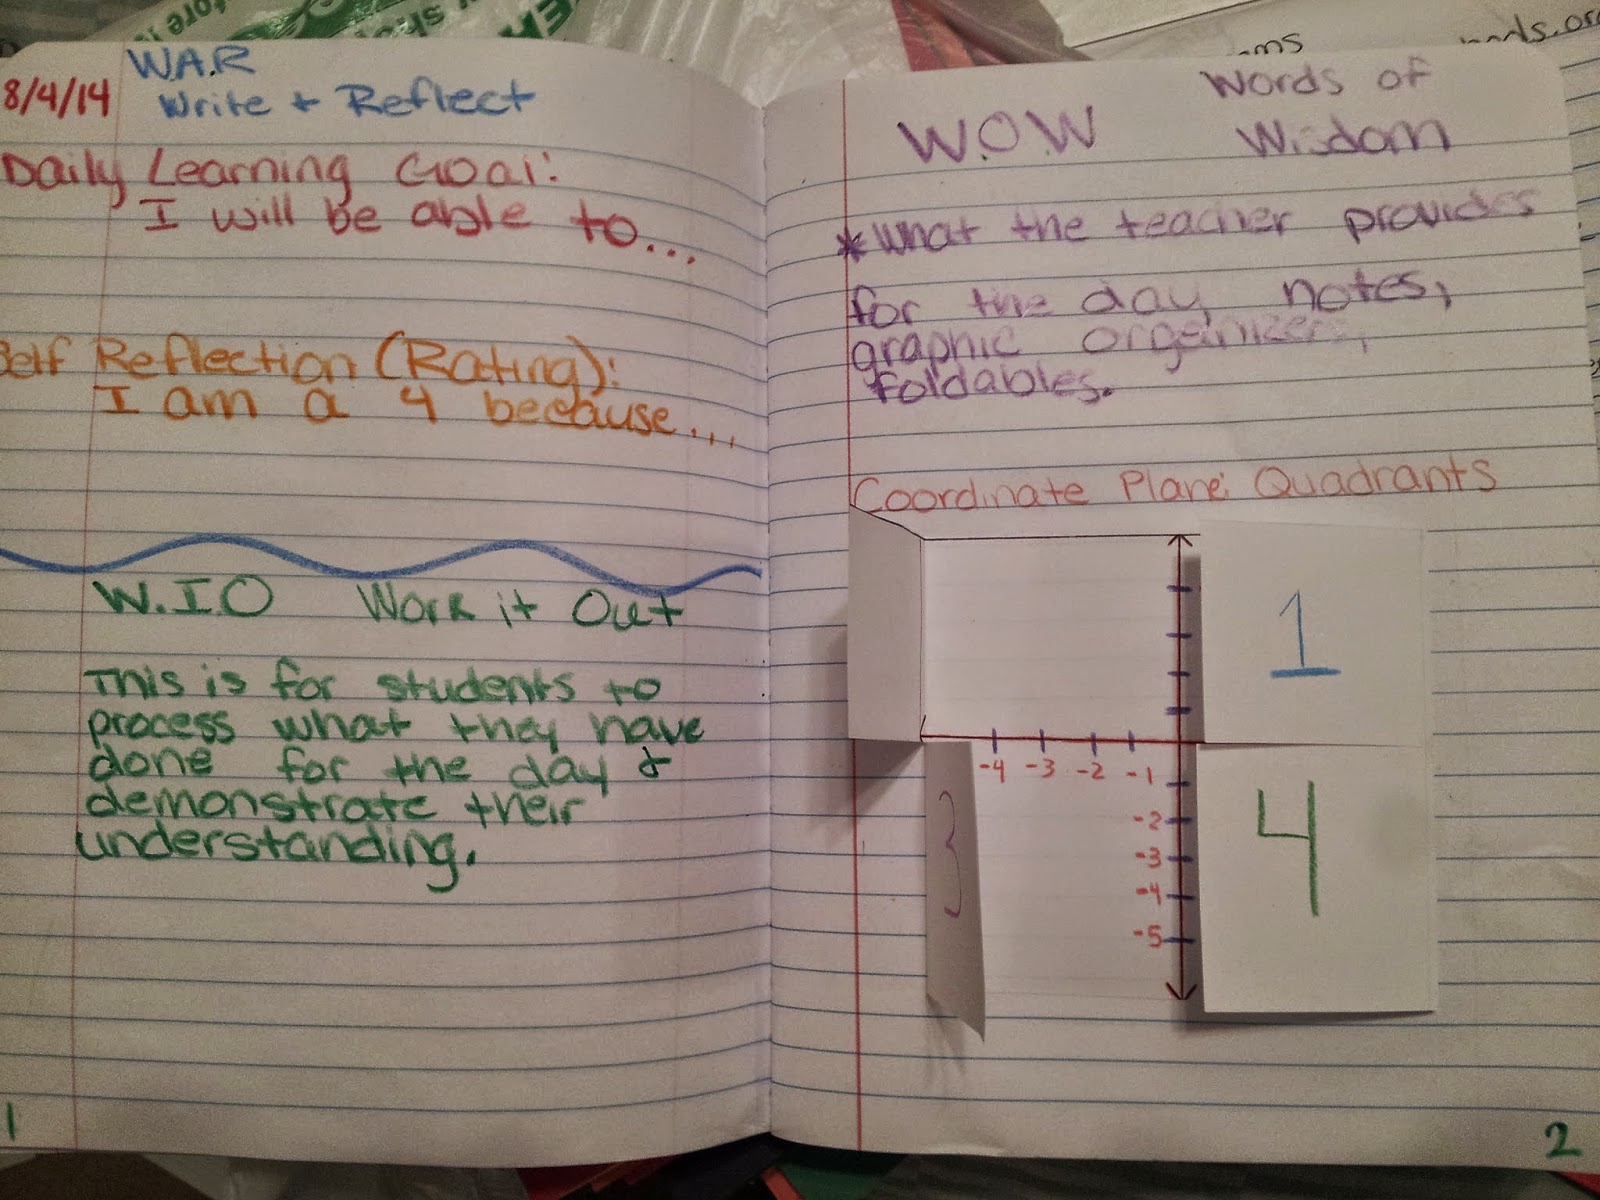 8/4/14
W.A.R
Write + Reflect
Daily Learning Goal:
I will be able to...
Self Reflection (Rating):
I am a 4 because...
W.I.O Work it Out
This is for students to
process what they have
done for the day &
demonstrate their
understanding.
1
W.O.W Words of
Wisdom
*What the teacher provides
for the day, notes,
graphic organizers,
foldables.
Coordinate Plane: Quadrants
1
-4 -3 -2 -1
-2
-3
-4
-5
3
4
2